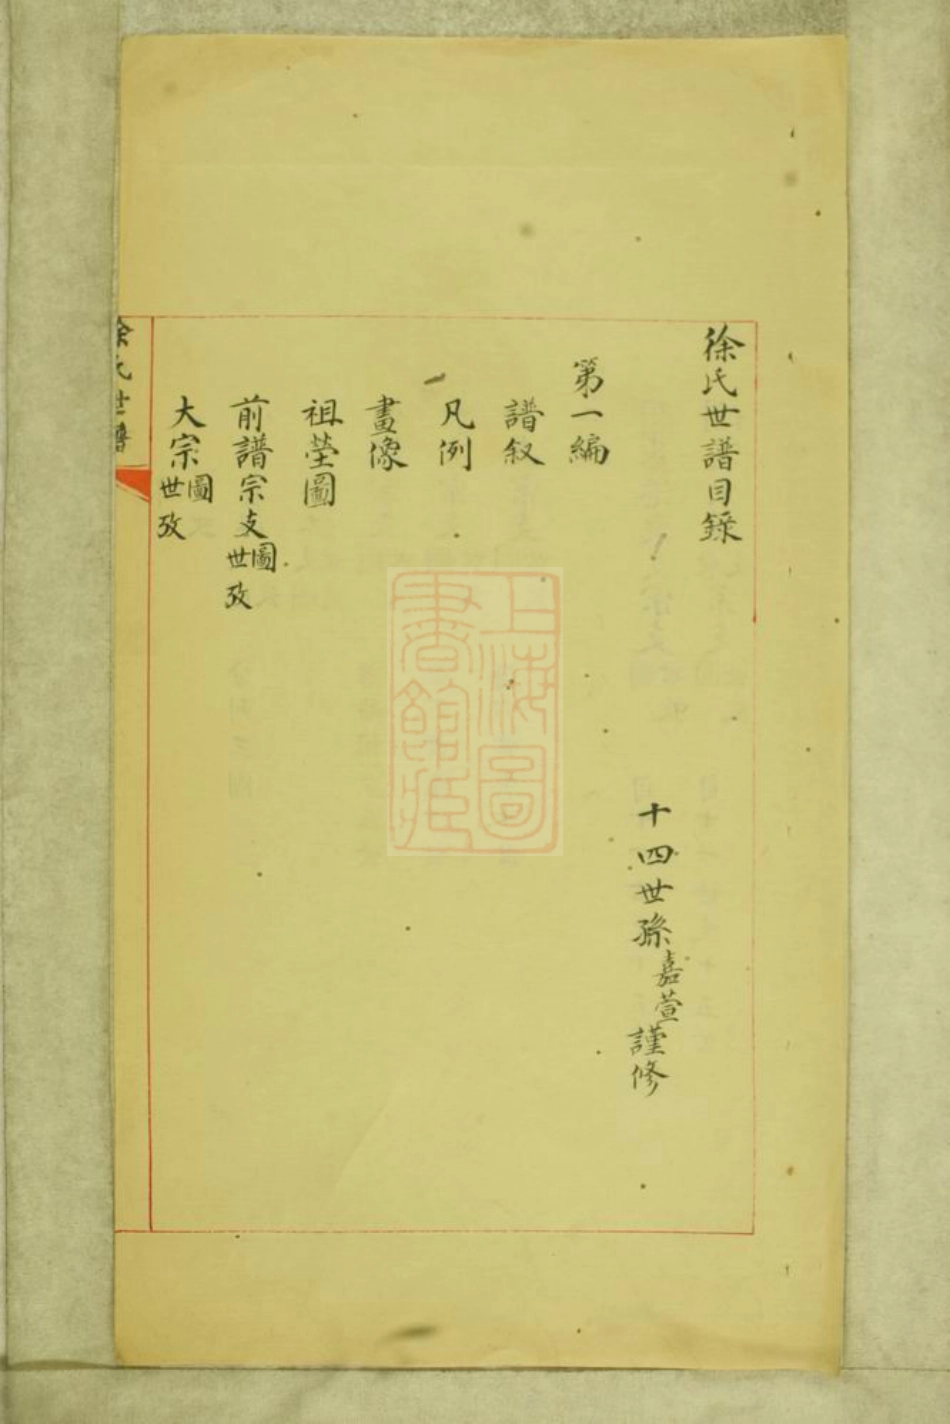 徐氏世譜目錄
十四世孫嘉萱謹修
第一編
譜叙
凡例
畫像
祖塋圖
前譜宗支圖世攷
大宗圖世攷
徐氏世譜
上海圖書館藏